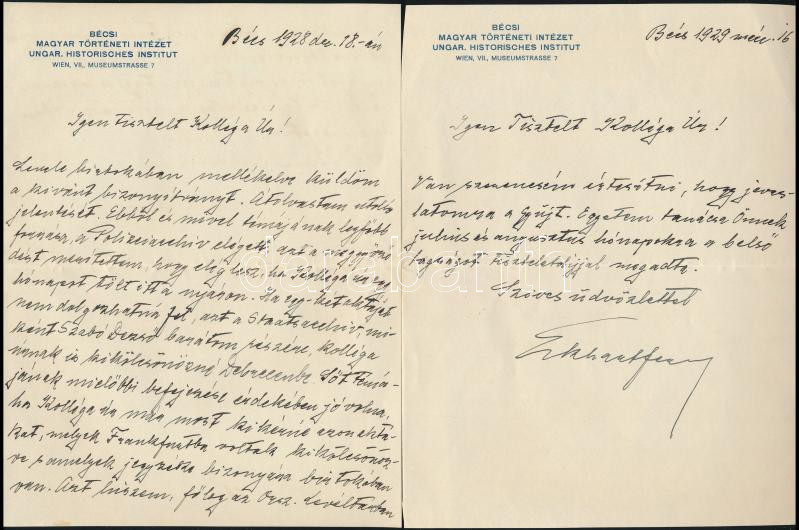 BÉCSI
MAGYAR TÖRTÉNETI INTÉZET
UNGAR. HISTORISCHES INSTITUT
WIEN, VII., MUSEUMSTRASSE 7
Bécs 1928 dec. 18.-án
Igen Tisztelt Kolléga Úr!
Levele birtokában mellékelve küldöm
a kívánt bizonyítványt. Átolvastam utolsó
jelentését. Ebből és mivel témájának legfőbb
forrása, a Polizeiarchiv elégett, azt a
meritettem, hogy elég lesz, ha Kolléga úr egy
hónapot tölt itt a nyáron. Ha egy-két aktáját
nem dolgozhatná fel, azt a Staatsarchiv,
ként Szabó Dezső barátom részére, Kolléga
úrnak is kikölcsönözné Debrecenbe. Sőt témá-
jának mielőbbi befejezése érdekében jó volna,
ha Kolléga úr már most kikérné azon aktá-
kat, melyek Frankfurtba voltak kikölcsönöz-
ve s amelyek jegyzéke bizonyára birtokában
van. Azt hiszem, főleg az Orsz. Levéltárban
BÉCSI
MAGYAR TÖRTÉNETI INTÉZET
UNGAR. HISTORISCHES INSTITUT
WIEN, VII., MUSEUMSTRASSE 7
Bécs 1929 16
Igen Tisztelt Kolléga Úr!
Van szerencsém értesíteni, hogy javas-
latomra a Gyűjt. Egyetem tanácsa Önnek
julius és augusztus hónapokra a belső
tagságot tiszteletdíjjal megadta.
Szíves üdvözlettel
Eckhart Ferenc
darabanth